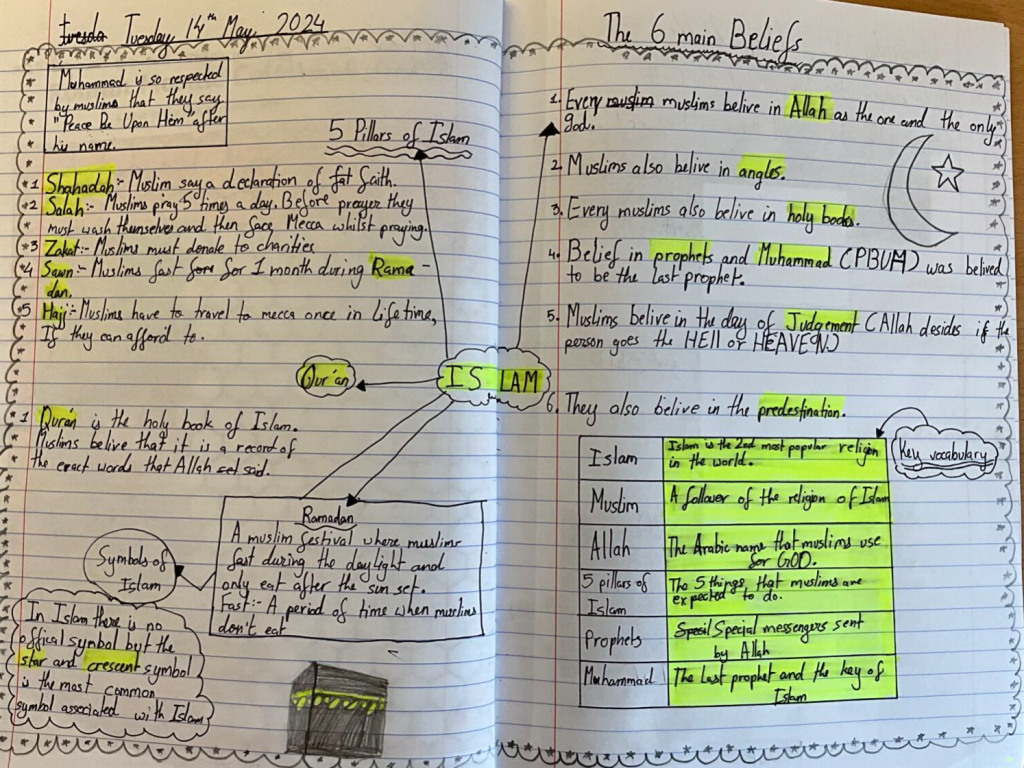 Tuesday 14th May, 2024
Muhammad is so respected
by muslims that they say
"Peace Be Upon Him" after
his name.
5 Pillars of Islam
*1 Shahadah:- Muslim say a declaration of faith.
*2 Salah:- Muslims pray 5 times a day. Before prayer they
must wash themselves and then face Mecca whilst praying.
*3 Zakat:- Muslims must donate to charities
*4 Sawn:- Muslims fast for 1 month during Rama-
dan.
*5 Hajj:- Muslims have to travel to mecca once in Lifetime,
If they can afford to.
Qur'an
ISLAM
1 Qur'an is the holy book of Islam.
Muslims belive that it is a record of
the exact words that Allah said.
Ramadan
A muslim festival where muslims
fast during the daylight and
only eat after the sun set.
Fast:- A period of time when muslims
don't eat
Symbols of
Islam
In Islam there is no
offical symbol but the
star and crescent symbol
is the most common
symbol associated with Islam
The 6 main Beliefs
1. Every muslims belive in Allah as the one and the only
god.
2. Muslims also belive in angles.
3. Every muslims also belive in holy books.
4. Belief in prophets and Muhammad (PBUH) was belived
to be the last prophet.
5. Muslims belive in the day of Judgement (Allah desides if the
person goes the HEll or HEAVEN)
6. They also belive in the predestination.
Key vocabulary
Islam Islam is the 2nd most popular religion
in the world.
Muslim A follower of the religion of Islam
Allah The Arabic name that muslims use
for GOD.
5 pillars of
Islam The 5 things, that muslims are
expected to do.
Prophets Special messengers sent
by Allah
Muhammad The last prophet and the key of
Islam